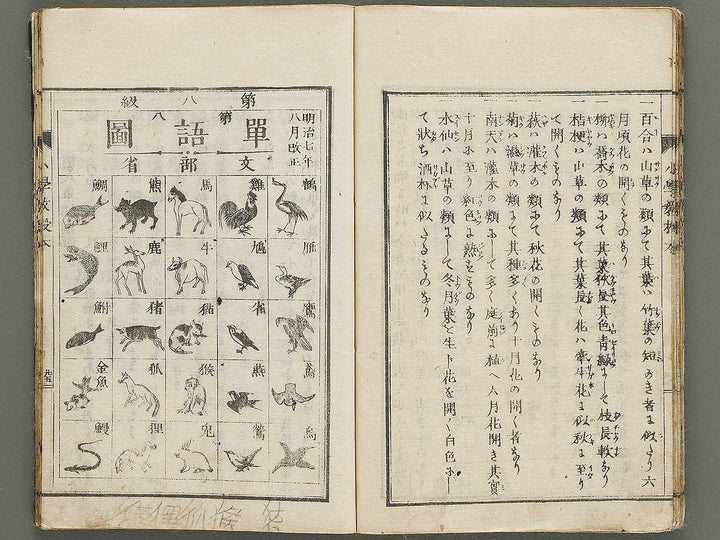 一百合ハ山草の類にて其葉ハ竹葉の短かき者に似たり六
月頃花の開くものあり
一柳ハ喬木の類にて其葉狭長其色青緑にして枝長軟なり
一桔梗ハ山草の類にて其葉長く花ハ牽牛花に似秋に至り
て開くものあり
萩ハ灌木の類にて秋花の開くものなり
菊ハ湿草の類にて其種多くあり十月花の開く者なり
南天ハ灌木の類にて多く庭前に植へ六月花開き其實
十月に至り紅色に熟するものなり
水仙ハ山草の類にして冬月葉を生下花を開く白色にし
て状ち酒杯に似たるものなり
小學教授本
第八級
第八
單語圖
明治七年
八月改正
文部省
鶴
雁
鷹
鳶
烏
雞
鳩
雀
燕
鶯
馬
牛
猫
猴
兎
熊
鹿
猪
狐
狸
鯛
鯉
鮒
金魚
鰻